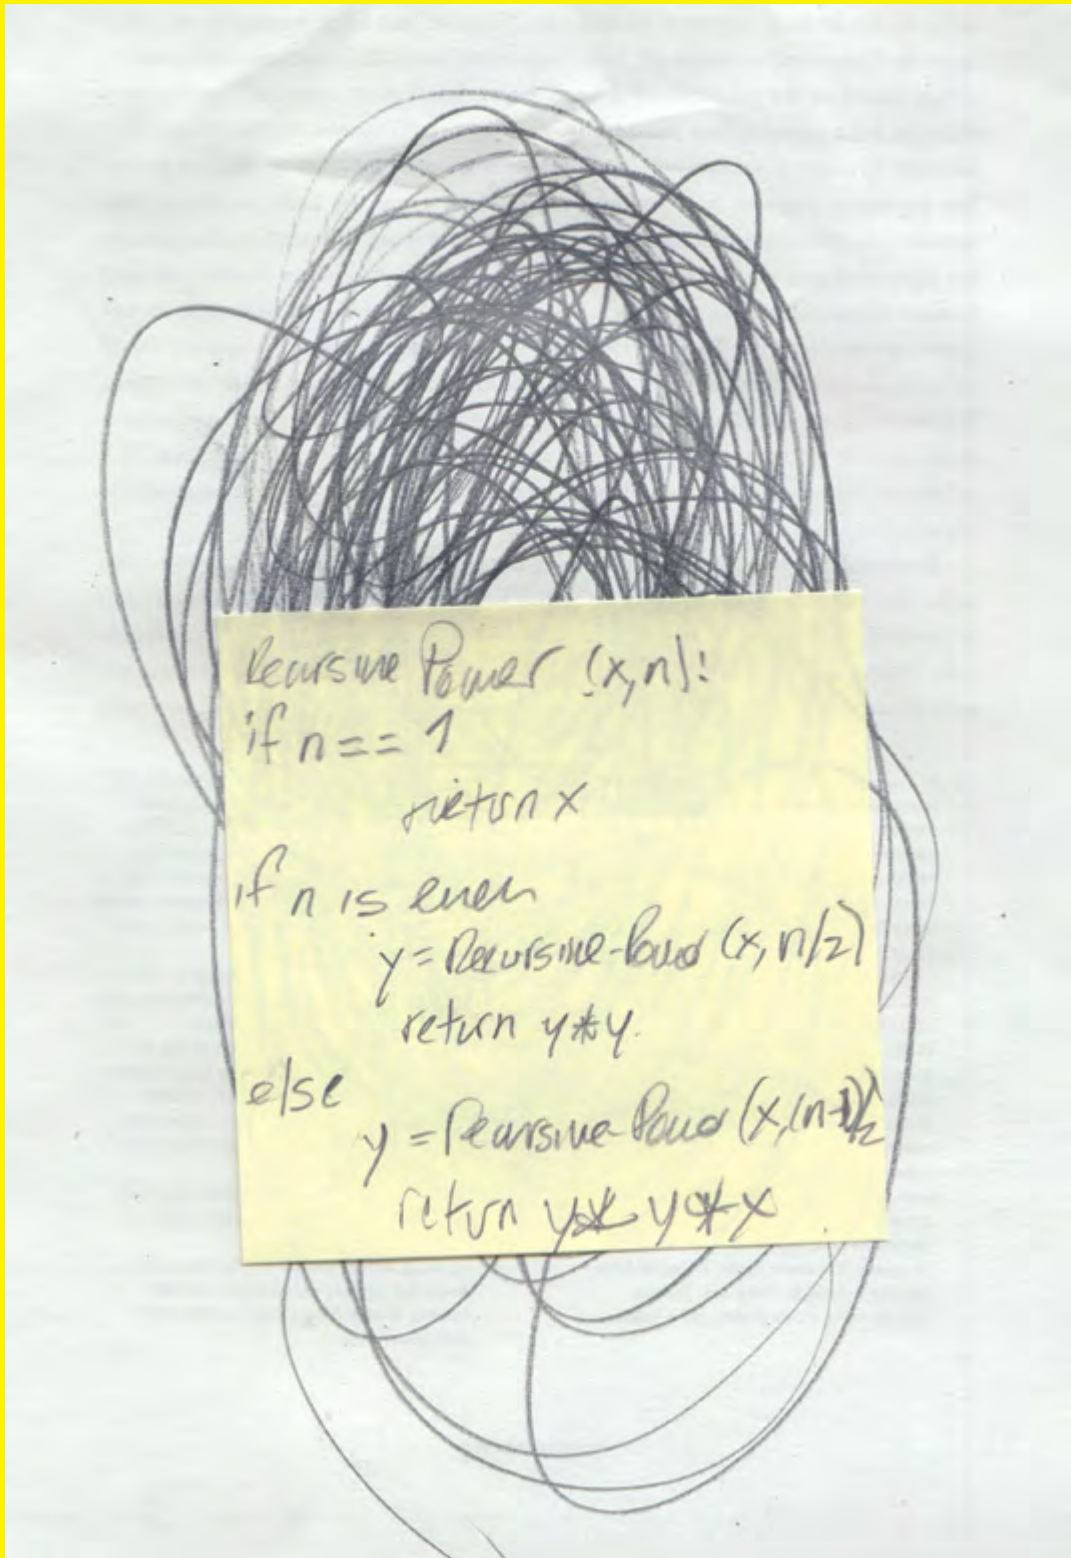 Recursive Power (x,n):
if n == 1
return x
if n is even
y = Recursive-Power (x, n/2)
return y*y.
else
y = Recursive-Power (x, (n-1)/2
return y* y*x